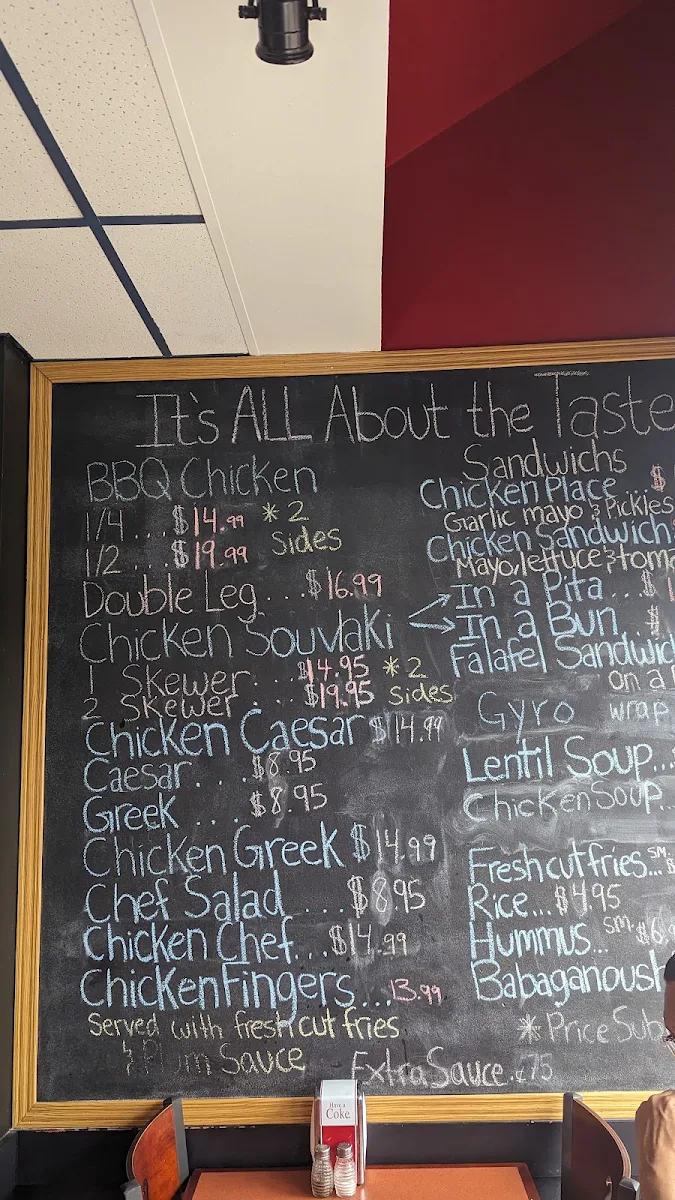 It's ALL About the Taste
BBQ Chicken
1/4 ... $14.99 * 2
1/2 ... $19.99 Sides
Double Leg.... $16.99
Chicken Souvlaki
1 Skewer... $14.95 * 2
2 Skewer... $19.95 Sides
Chicken Caesar $14.99
Caesar.... $8.95
Greek .... $8.95
Chicken Greek $14.99
Chef Salad .... $8.95
Chicken Chef... $14.99
Chicken Fingers... 13.99
Served with fresh cut fries
& Plum Sauce
Extra Sauce.¢75
Sandwichs
Chicken Place $
Garlic mayo & Pickles
Chicken Sandwich
Mayo, lettuce & toma
In a Pita ... $1
In a Bun
Falafel Sandwic
on a
Gyro wrap
Lentil Soup...
Chicken Soup..
Fresh cut fries SM. ... $
Rice... $4.95
Hummus... SM. $6.9
Babaganoush
* Price Sub
Have a
Coke